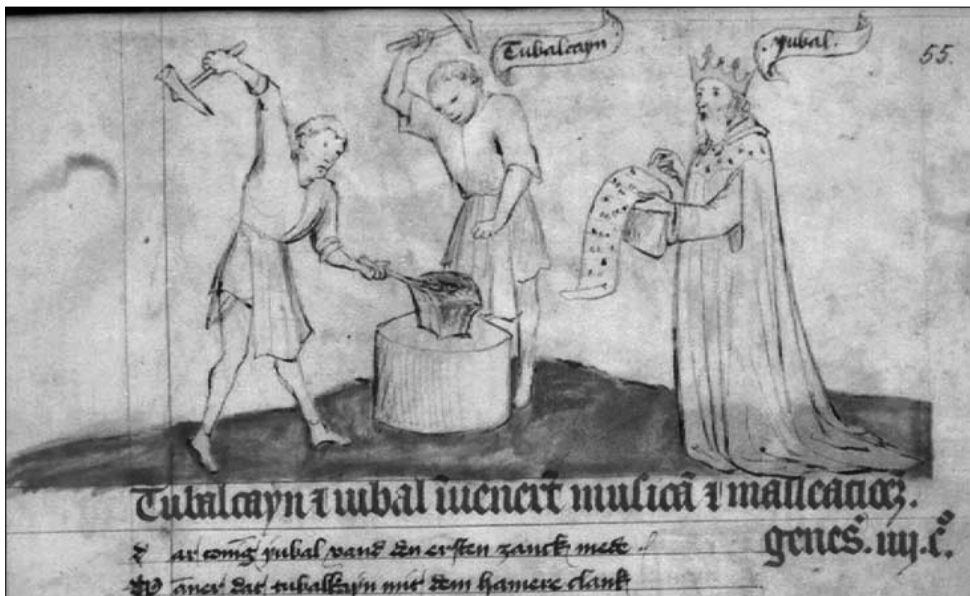 Tubalcayn
yubal.
55.
Tubalcayn ⁊ iubal īuenert̄ musicā ⁊ malleatioꝫ.
genes̊. iiij. c̊.
ar conīg yubal vand dn ersten zanck mede
aner dat tubalkayn mit dem hamere clank